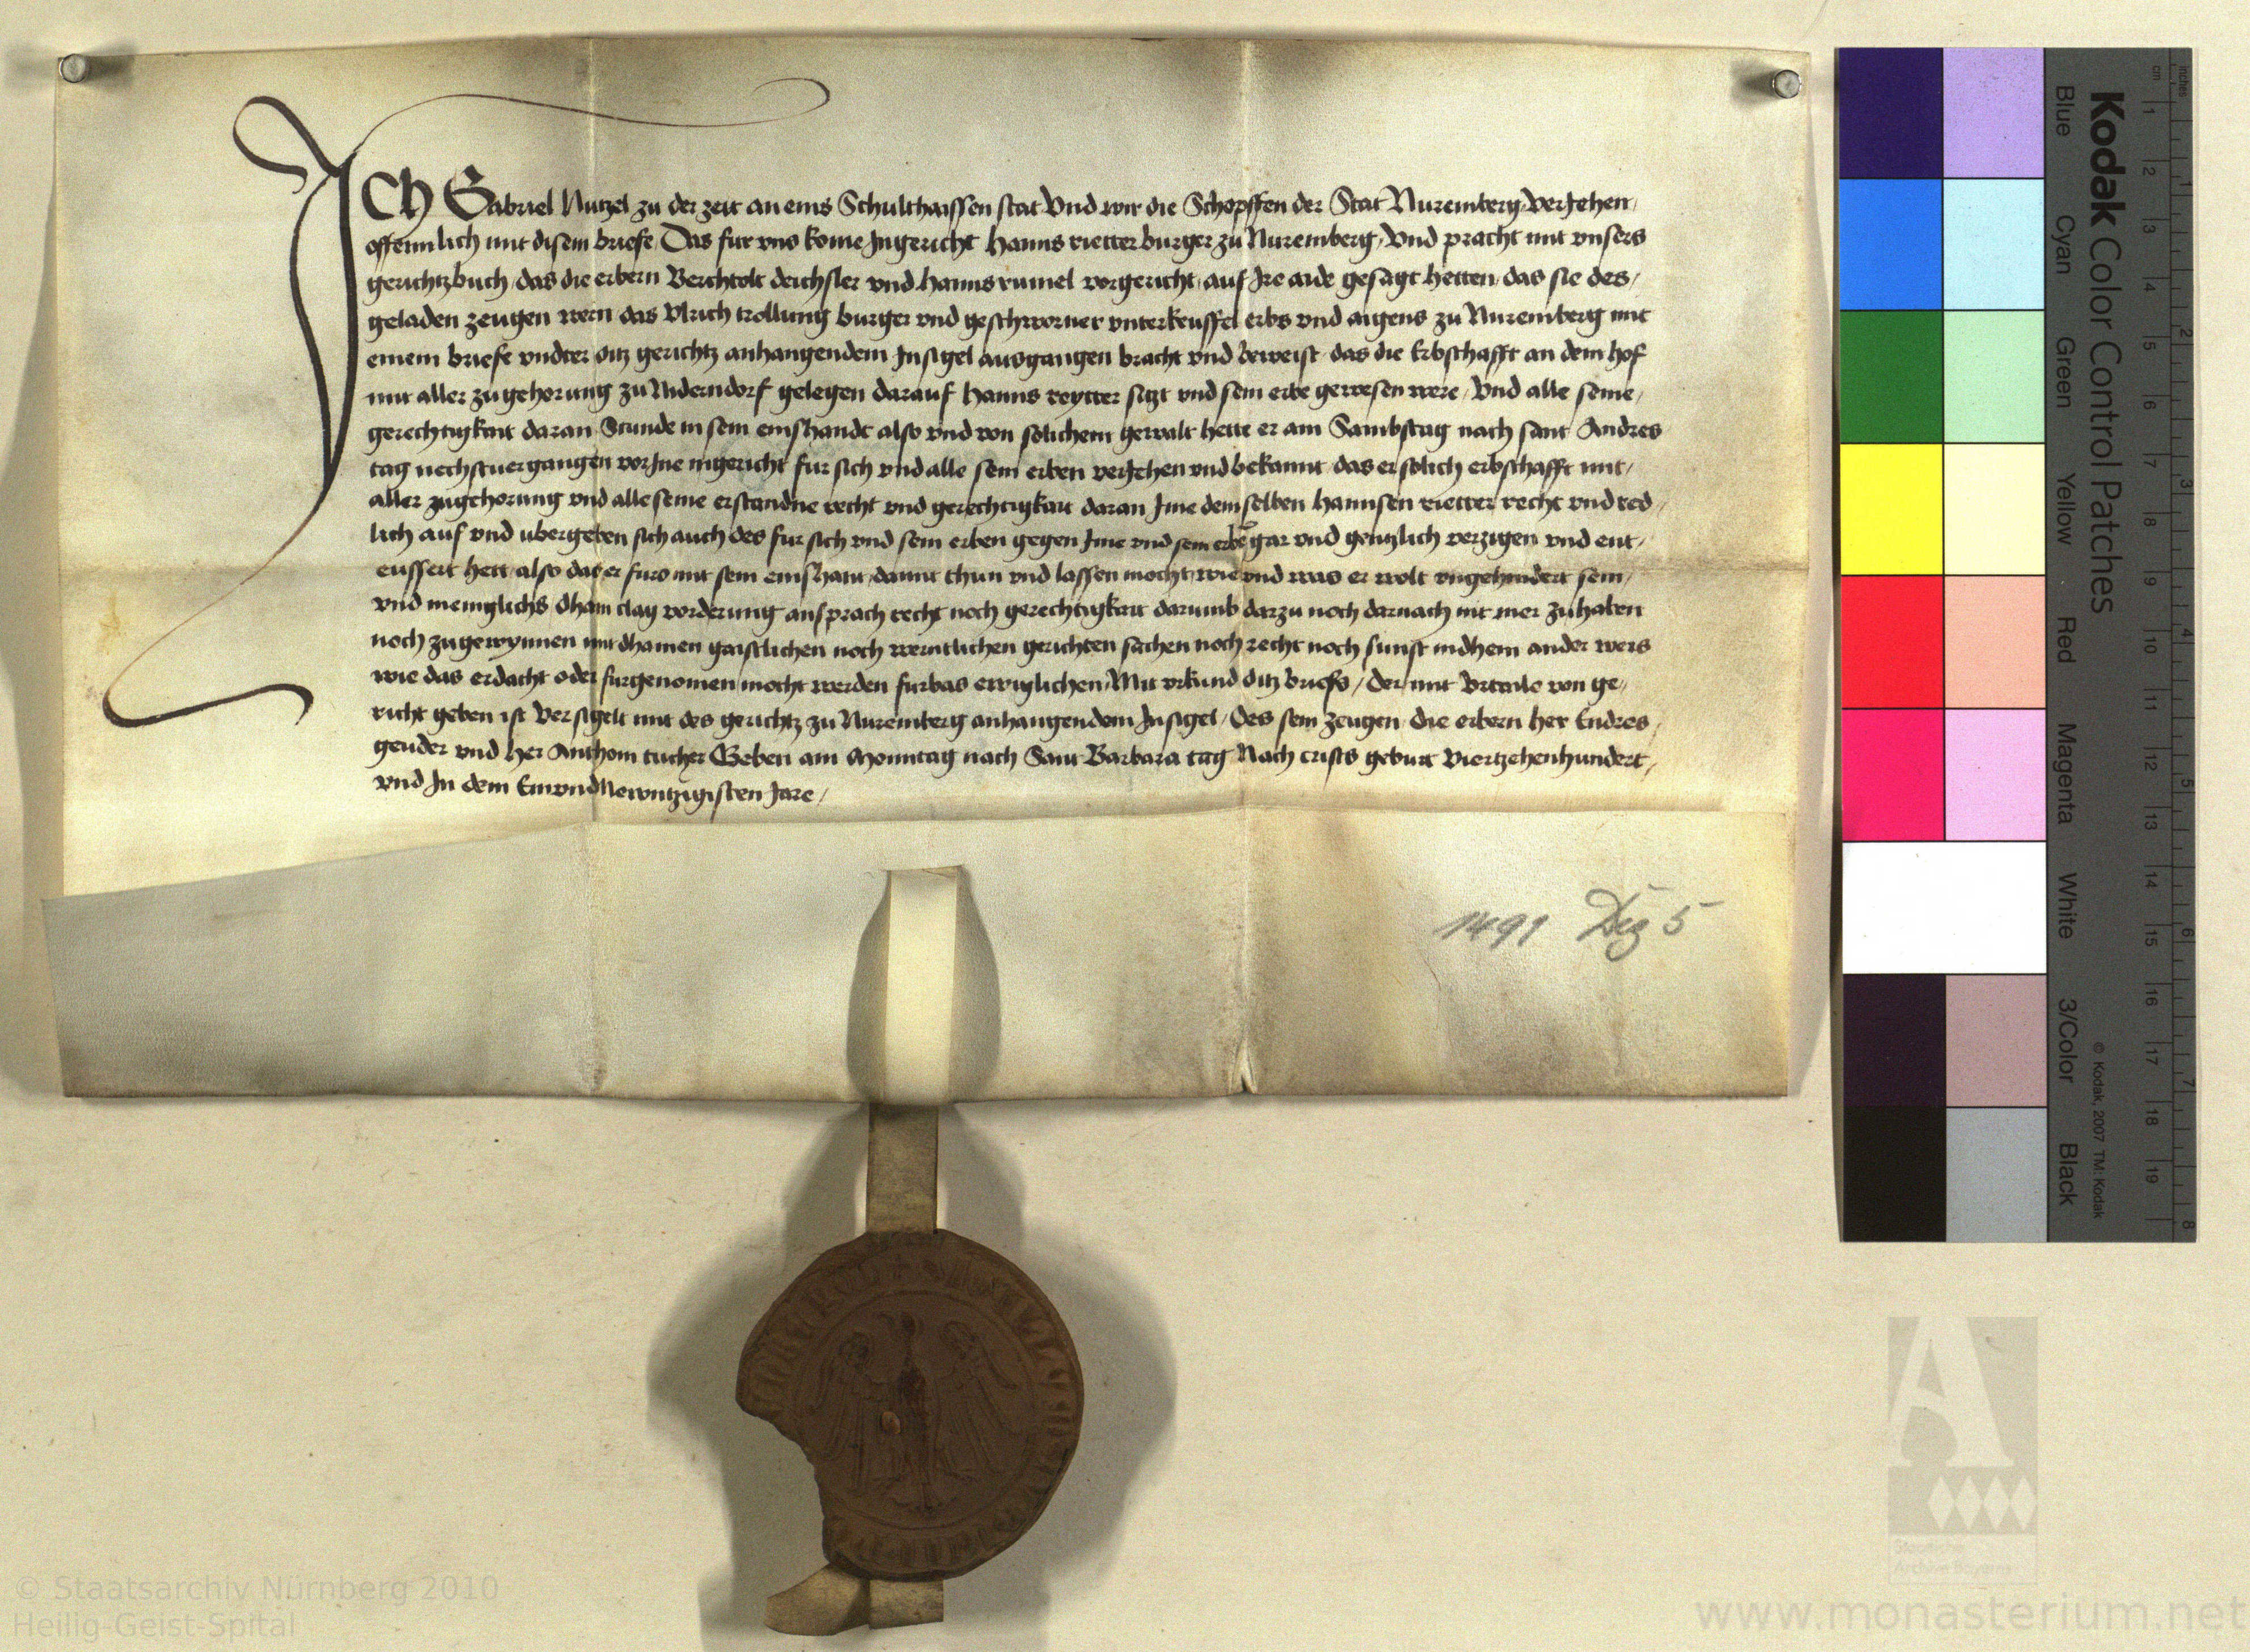 ICH Gabriel Nutzel zu der zeit an eins Schulthaissen stat Vnd wir die Schopffen der Stat Nuremberg Veriehen
offennlich mit disem briefe Das fur vns kome Ingericht Hanns rietter burger zu Nuremberg Vnd pracht mit vnsers
gerichtzbuch das die erbern Berchtolt deichsler vnd Hanns rumel vorgericht auf Ire aide gesagt hetten das sie des
geladen zeugen wern das Vlrich trollung burger vnd geschworner vnterkeuffel erbs vnd aigens zu Nuremberg mit
einem briefe vndter ditz gerichtz anhangendem Insigel ausgangen bracht vnd beweist das die Erbschafft an dem hof
mit aller zugehorung zu Niderndorf gelegen darauf Hanns reytter sitzt vnd sein erbe gewesen were Vnd alle seine
gerechtigkait daran Stunde in sein einshandt also vnd von solichem gewalt hette er am Sambstag nach sant Andres
tag nechstuergangen vor Ine ingericht fur sich vnd alle sein erben veriehen vnd bekannt das er solich erbschafft mit
aller zugehorung vnd alle seine erstandne recht vnd gerechtigkait daran Ime demselben Hannsen rietter recht vnd red
lich auf vnd vbergeben sich auch des fur sich vnd sein erben gegen Ime vnd sein erben gar vnd genntzlich verzigen vnd ent
eussert hett also das er furo mit sein einshant damit thun vnd lassen mocht wie vnd was er wolt vngehindert sein
vnd meinglichs dhain clag vorderung ansprach recht noch gerechtigkait darumb darzu noch darnach nit mer zuhaben
noch zugewynnen mit dhainen gaistlichen noch werntlichen gerichten sachen noch recht noch sunst indhein ander weis
wie das erdacht oder furgenomen mocht werden furbas ewiglichen Mit vrkund ditz briefs / Der mit Vrteile von ge
richt geben ist Versigelt mit des gerichtz zu Nuremberg anhangendem Insigel / Des sein zeugen die erbern her Endres
geuder vnd her Anthoni tucher Geben am Monntag nach Sant Barbara tag Nach crists geburt Viertzehenhundert
vnd In dem Einvndnewntzigisten Jare /
1491 Dez 5
Kodak Color Control Patches
Blue Cyan Green Yellow Red Magenta White 3/Color Black
© Kodak, 2007 TM: Kodak
inches 1 2 3 4 5 6 7 8
cm 1 2 3 4 5 6 7 8 9 10 11 12 13 14 15 16 17 18 19
Staatliche
Archive Bayerns
© Staatsarchiv Nürnberg 2010
Heilig-Geist-Spital
www.monasterium.net